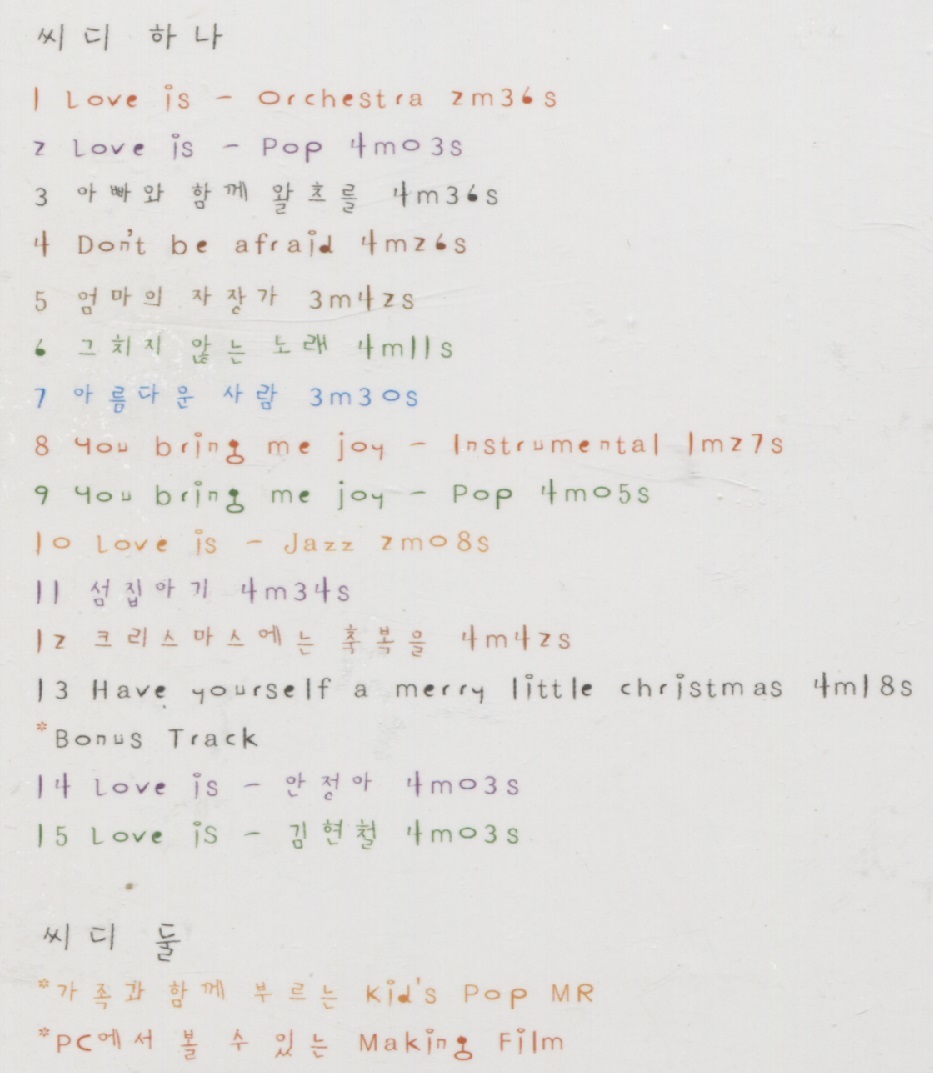 씨디 하나
1 Love is - Orchestra 2m36s
2 Love is - Pop 4m03s
3 아빠와 함께 왈츠를 4m36s
4 Don't be afraid 4m26s
5 엄마의 자장가 3m42s
6 그치지 않는 노래 4m11s
7 아름다운 사람 3m30s
8 You bring me joy - Instrumental 1m27s
9 You bring me joy - Pop 4m05s
10 Love is - Jazz 2m08s
11 섬집아기 4m34s
12 크리스마스에는 축복을 4m42s
13 Have yourself a merry little christmas 4m18s
*Bonus Track
14 Love is - 안정아 4m03s
15 Love is - 김현철 4m03s
씨디 둘
*가족과 함께 부르는 Kid's Pop MR
*PC에서 볼 수 있는 Making Film